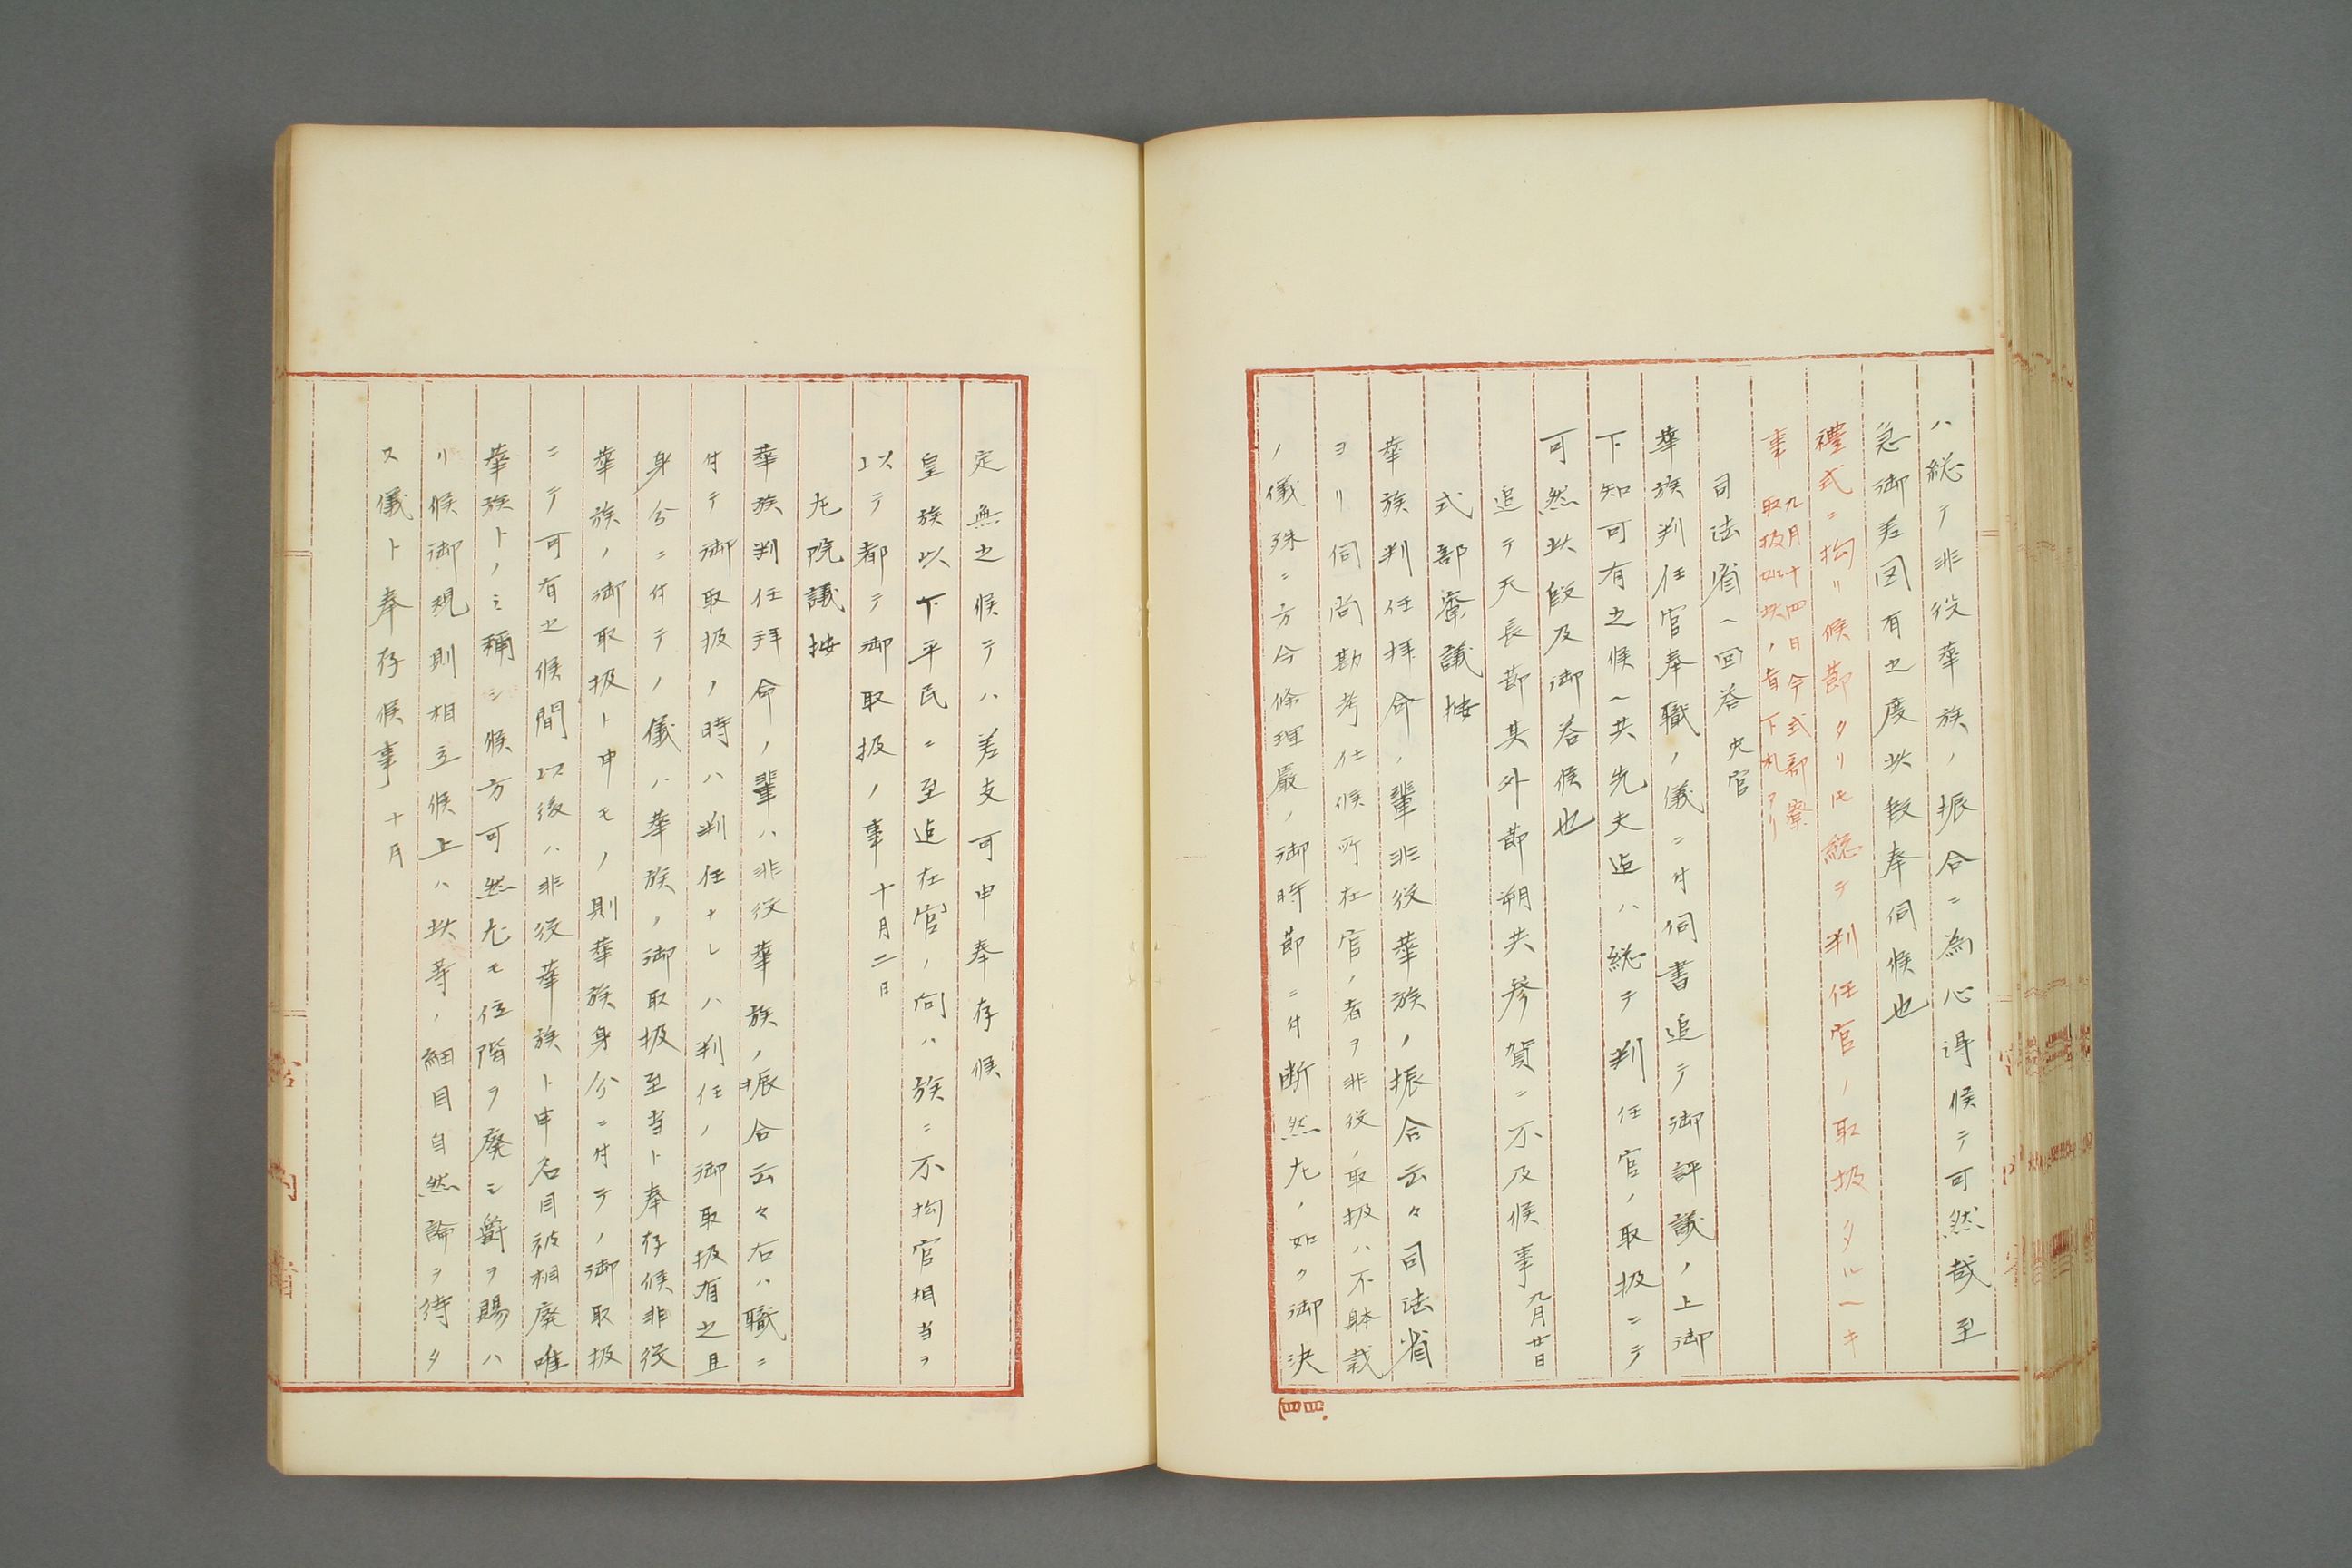 ハ総テ非役華族ノ振合ニ為心得候テ可然哉至
急御差図有之度此段奉伺候也
禮式ニ拘リ候節タリ𪜈総テ判任官ノ取扱タルヘキ
事 九月十四日今式部寮
取扱如此ノ旨下札アリ
司法省ヘ回答 史官
華族判任官奉職ノ儀ニ付伺書追テ御評議ノ上御
下知可有之候ヘ共先夫迠ハ総テ判任官ノ取扱ニテ
可然此段及御答候也
追テ天長節其外節朔共参賀ニ不及候事 九月廿日
式部寮議按
華族判任拝命ノ輩非役華族ノ振合云々司法省
ヨリ伺尚勘考仕候所在官ノ者ヲ非役ノ取扱ハ不躰裁
ノ儀殊ニ方今條理嚴ノ御時節ニ付断然左ノ如ク御決
四四
定無之候テハ差支可申奉存候
皇族以下平民ニ至迠在官ノ向ハ族ニ不拘官相当ヲ
以テ都テ御取扱ノ事 十月二日
左院議按
華族判任拝命ノ輩ハ非役華族ノ振合云々右ハ職ニ
付テ御取扱ノ時ハ判任ナレハ判任ノ御取扱有之且
身分ニ付テノ儀ハ華族ノ御取扱至当ト奉存候非役
華族ノ御取扱ト申モノ則華族身分ニ付テノ御取扱
ニテ可有之候間以後ハ非役華族ト申名目被相廃唯
華族トノミ称シ候方可然尤モ位階ヲ廃シ爵ヲ賜ハ
リ候御規則相立候上ハ此等ノ細目自然論ヲ待タ
ス儀ト奉存候事 十月